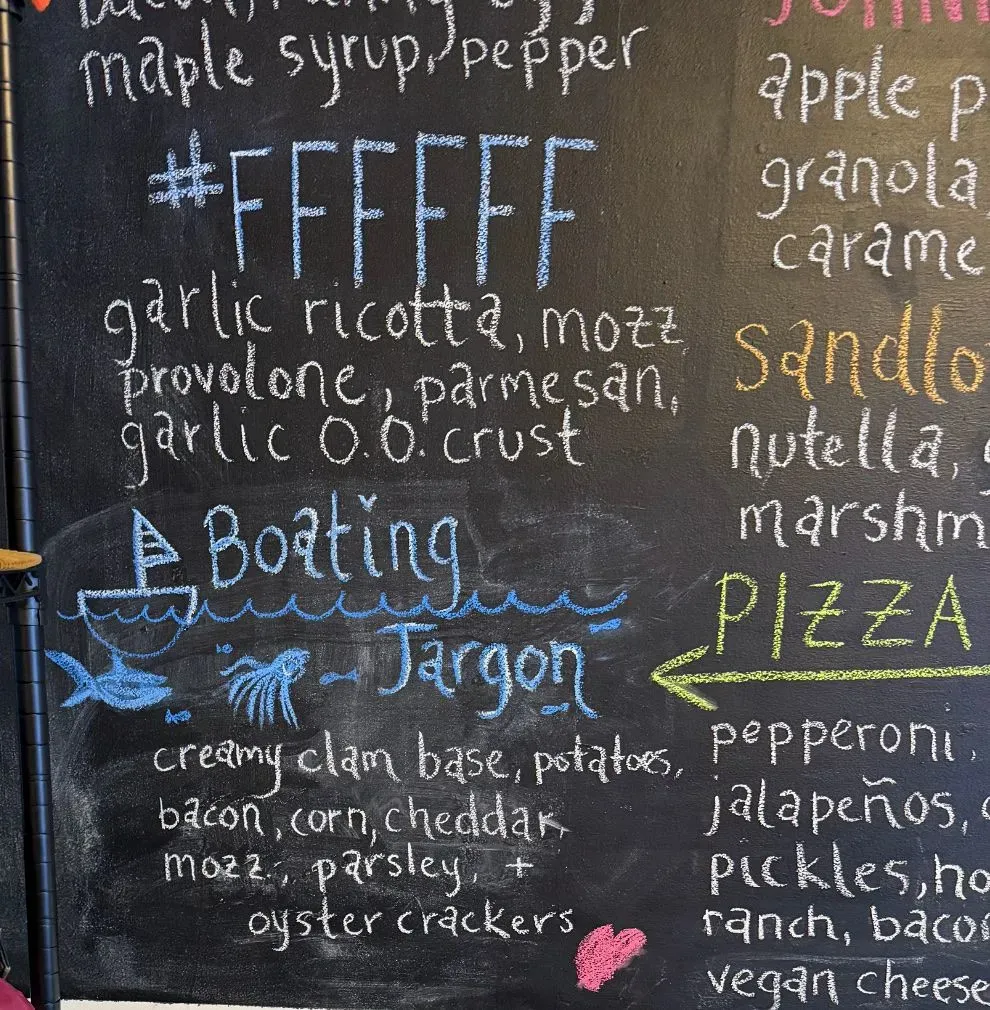 maple syrup, pepper
#FFFFFF
garlic ricotta, mozz
provolone, parmesan,
garlic O.O. crust
Boating
Jargon
creamy clam base, potatoes,
bacon, corn, cheddar
mozz, parsley, +
oyster crackers
apple p
granola
carame
Sandlo
nutella,
marshm
PIZZA
pepperoni,
jalapeños,
pickles, ho
ranch, bacon
vegan cheese